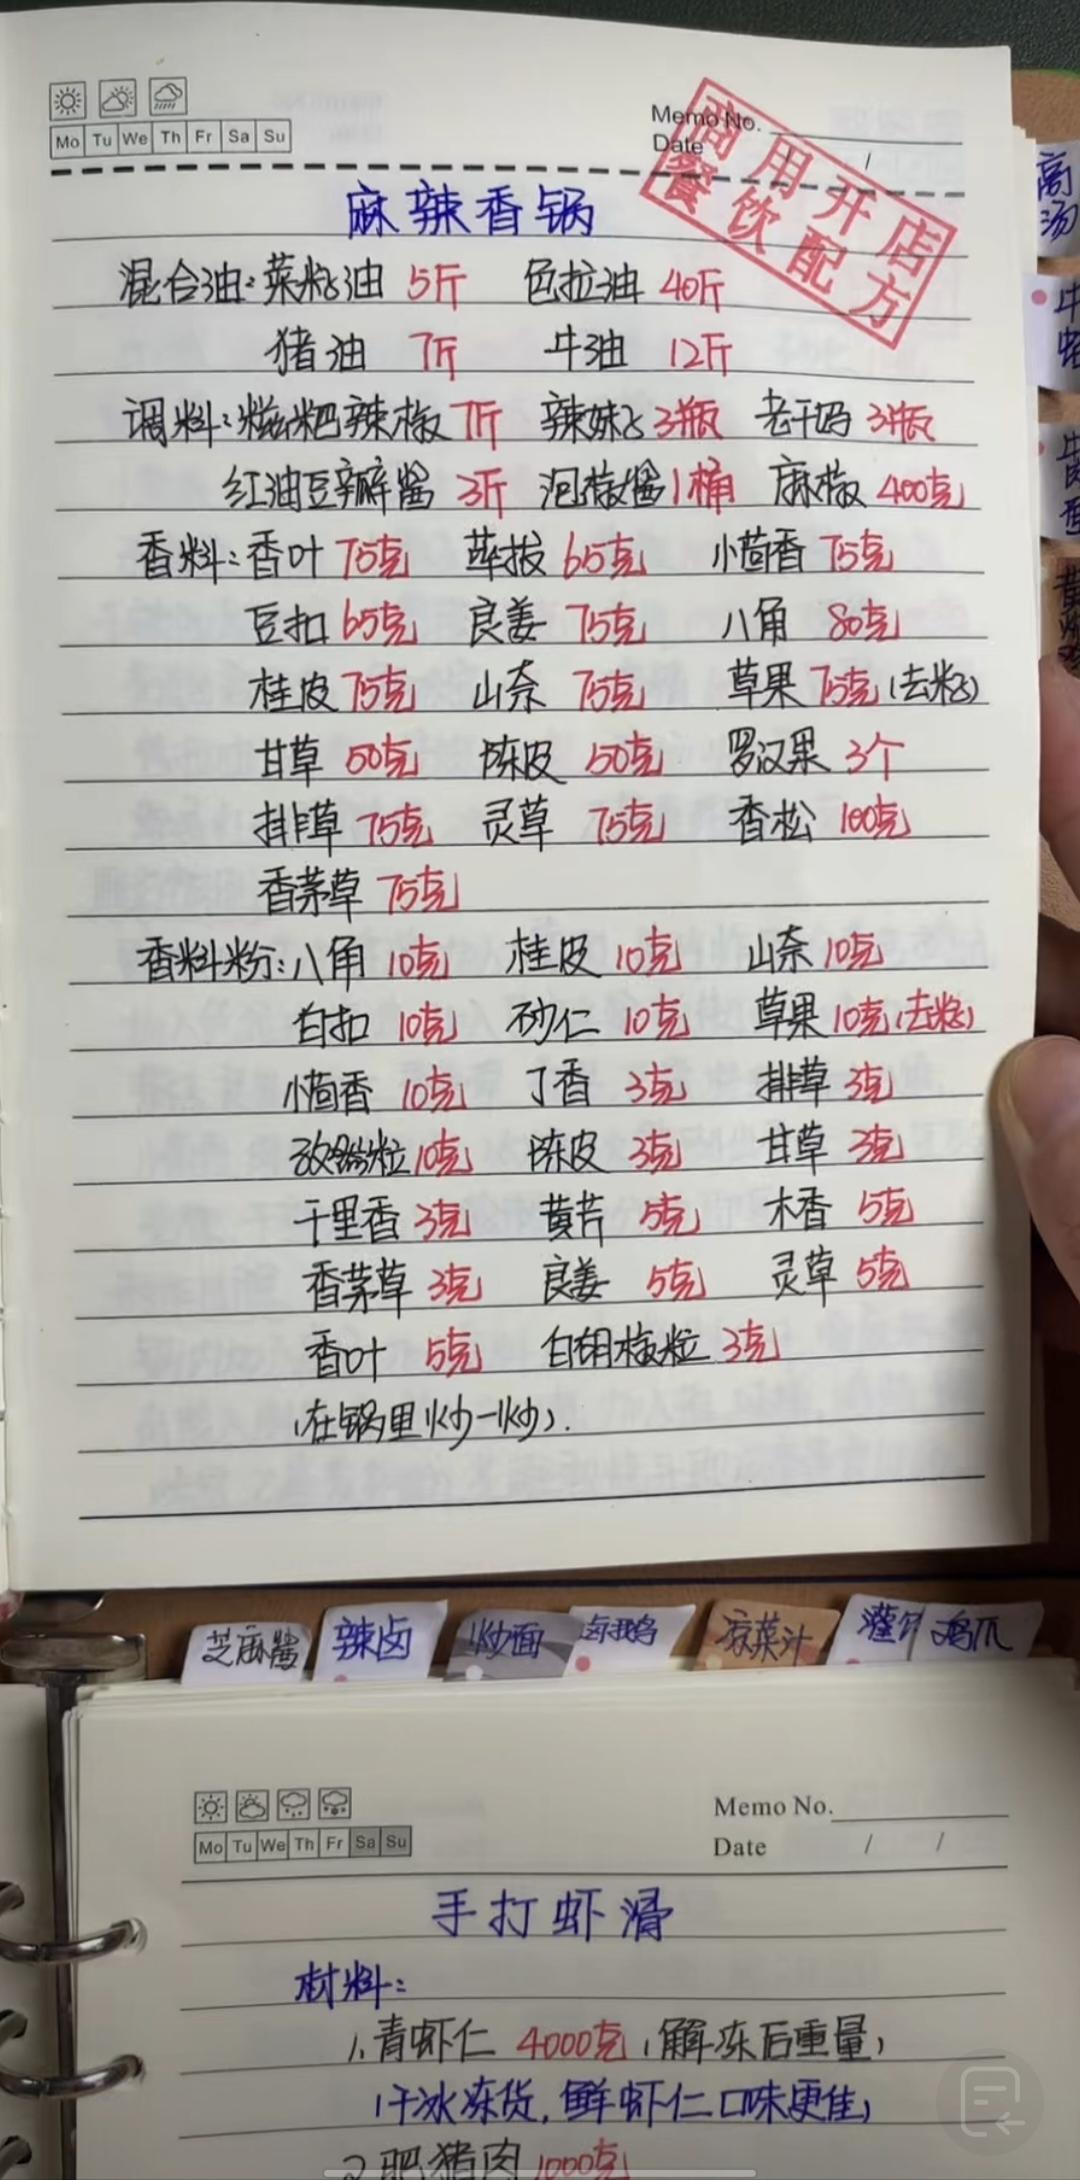 Mo Tu We Th Fr Sa Su
Memo No.
Date / /
商用开店
餐饮配方
麻辣香锅
混合油:菜籽油 5斤 色拉油 40斤
猪油 7斤 牛油 12斤
调料:糍粑辣椒 7斤 辣妹子 3瓶 老干妈 3瓶
红油豆瓣酱 3斤 泡椒酱 1桶 麻椒 400克
香料:香叶 75克 荜拔 65克 小茴香 75克
豆扣 65克 良姜 75克 八角 80克
桂皮 75克 山奈 75克 草果 75克(去籽)
甘草 50克 陈皮 50克 罗汉果 3个
排草 75克 灵草 75克 香松 100克
香茅草 75克
香料粉:八角 10克 桂皮 10克 山奈 10克
白扣 10克 砂仁 10克 草果 10克(去籽)
小茴香 10克 丁香 3克 排草 3克
孜然粒 10克 陈皮 3克 甘草 3克
千里香 3克 黄芪 5克 木香 5克
香茅草 3克 良姜 5克 灵草 5克
香叶 5克 白胡椒粒 3克
(在锅里炒一炒).
高汤
芝麻酱 辣卤 炒面 卤鹅 凉菜汁 灌 鸡爪
Mo Tu We Th Fr Sa Su
Memo No.
Date / /
手打虾滑
材料:
1.青虾仁 4000克(解冻后重量)
(干冰冻货,鲜虾仁口味更佳)
2.肥猪肉 1000克